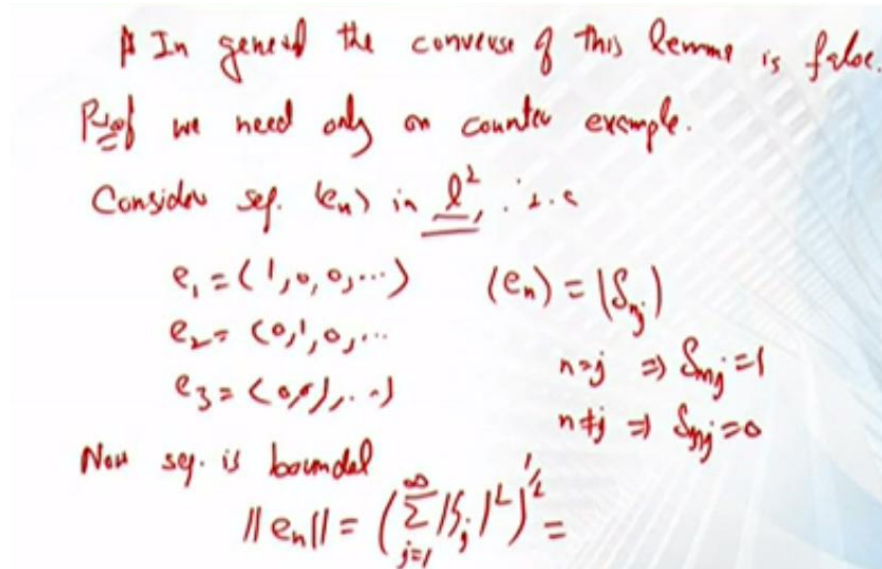 In general the converse of this lemma is false.
Proof we need only on counter example.
Consider seq. (en) in l², i.e
e₁ = (1,0,0,...) (en) = (δnj)
e₂ = (0,1,0,...
e₃ = (0,0,1,...) n=j ⇒ δnj = 1
n≠j ⇒ δnj = 0
Now seq. is bounded
||en|| = (∑_{j=1}^{∞} |δj|²)^{1/2} =